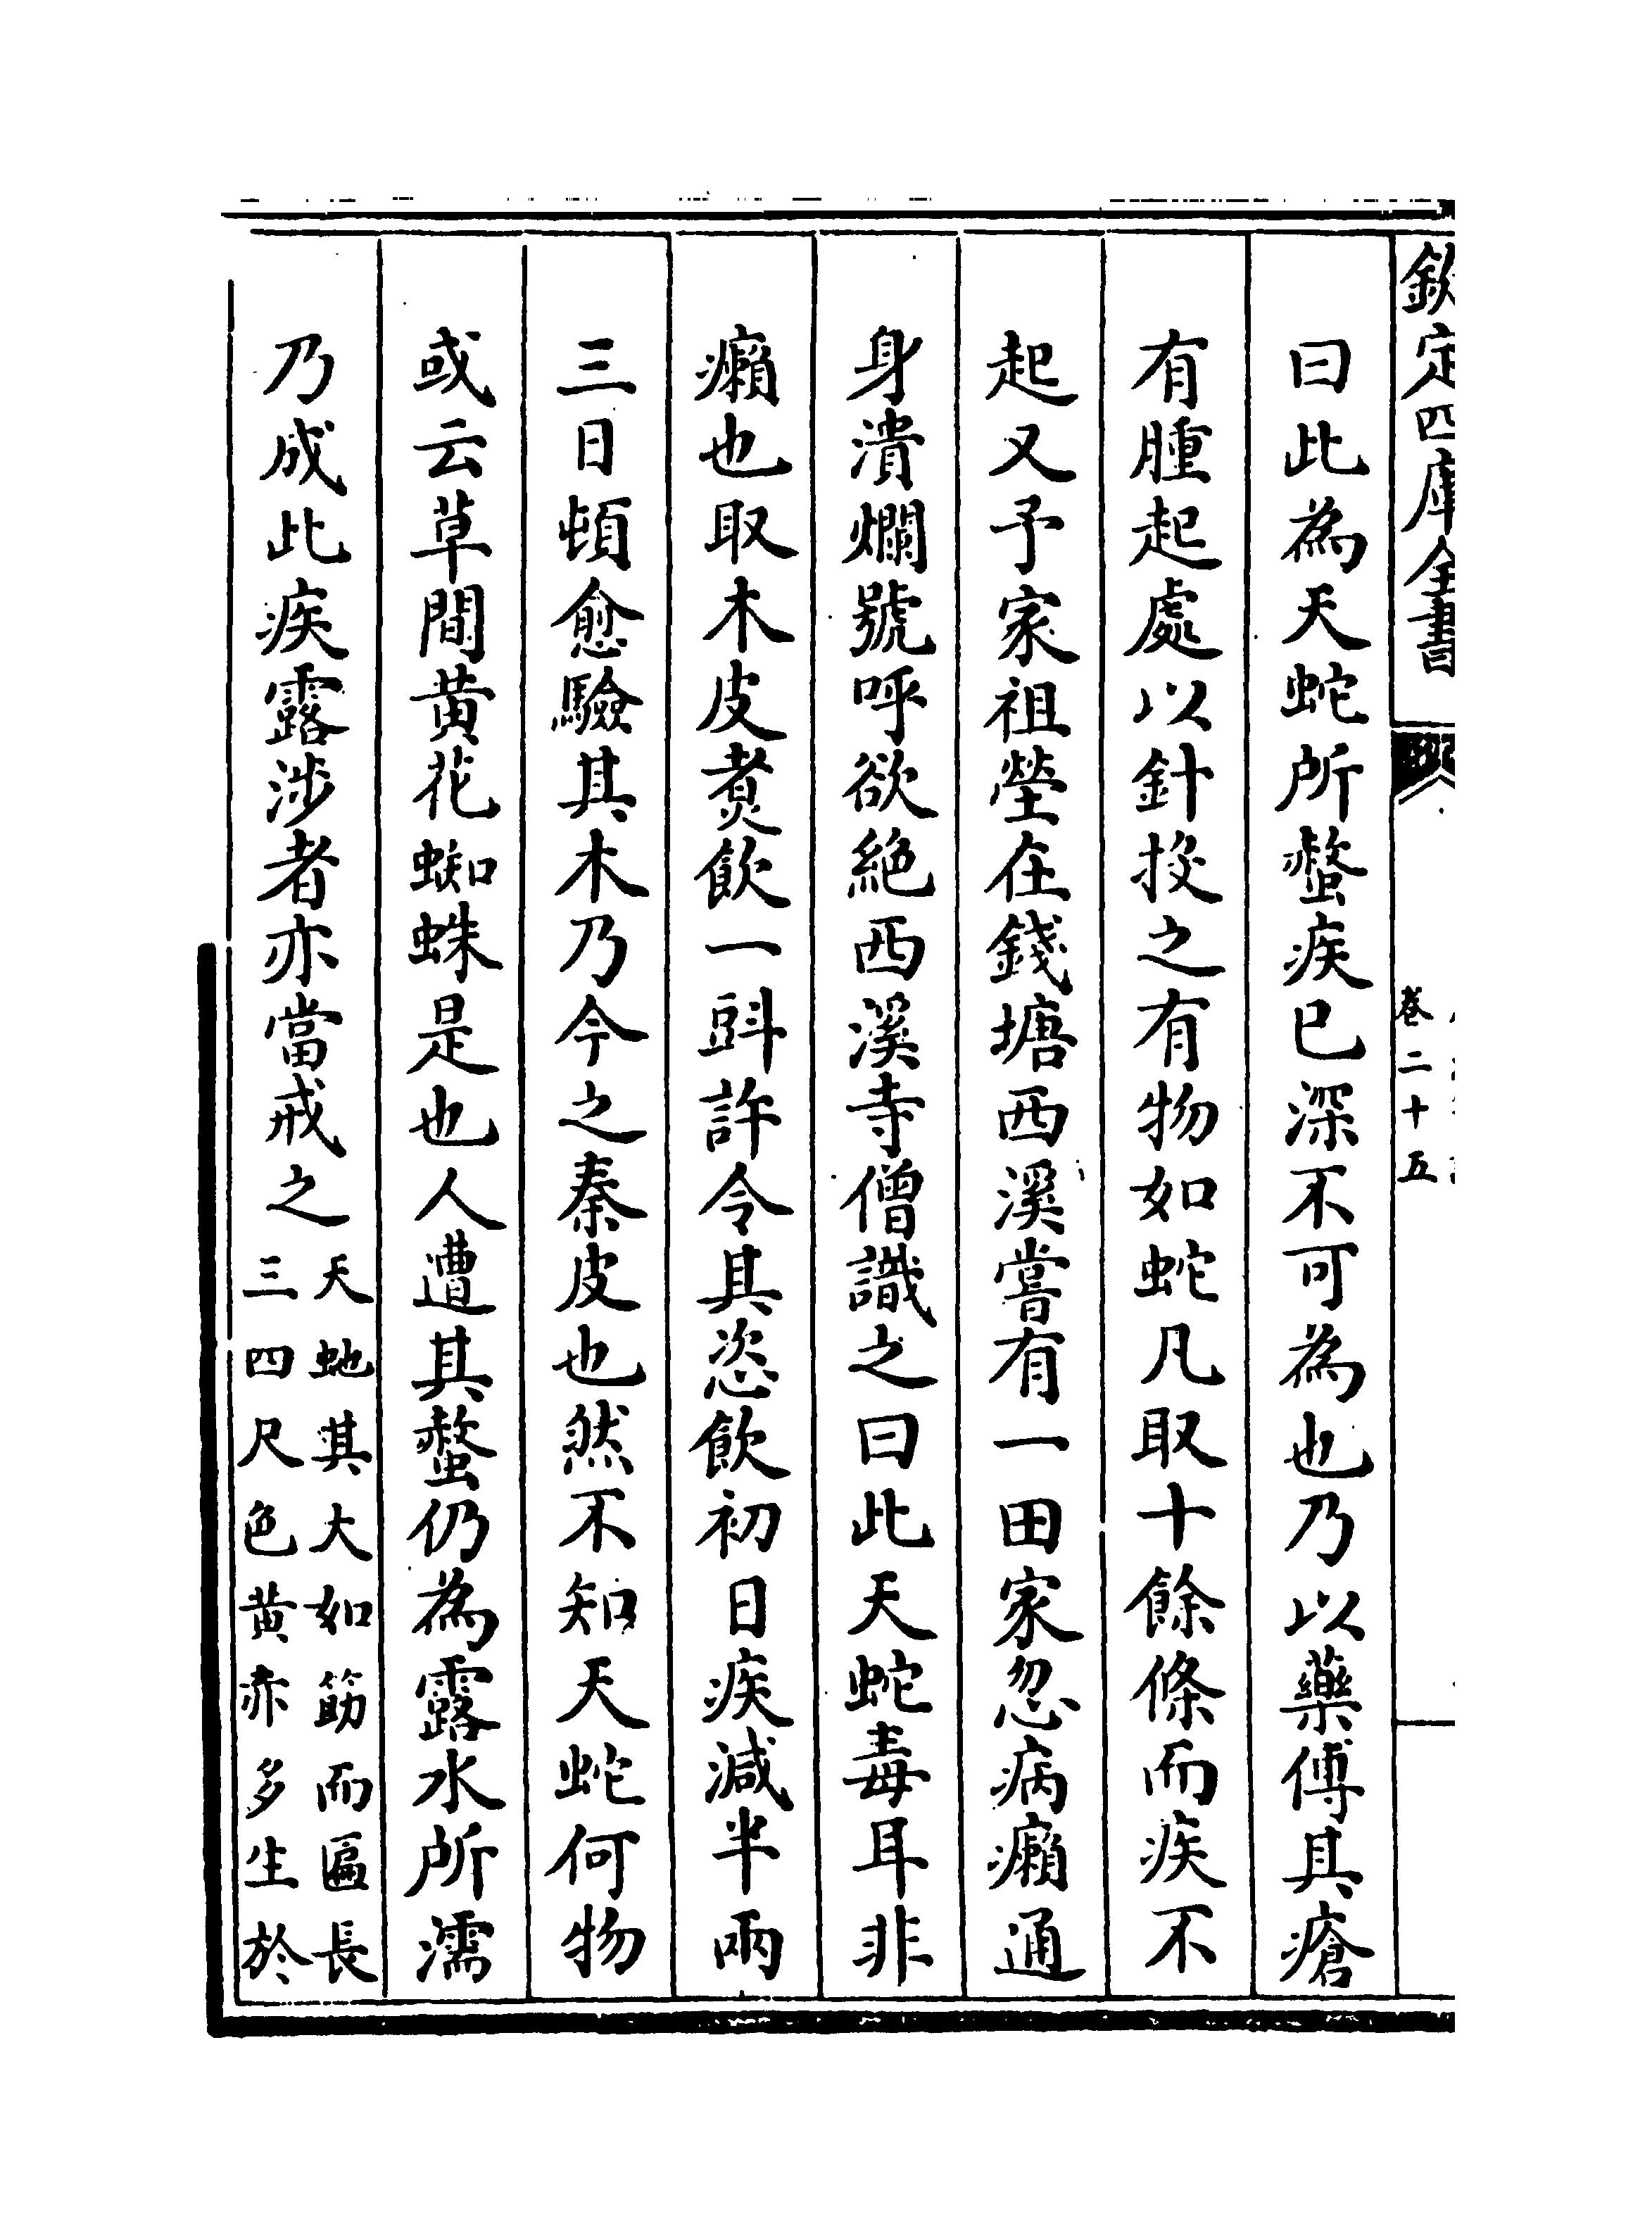 欽定四庫全書
卷二十五
曰此為天蛇所螫疾已深不可為也乃以藥傅其瘡
有腫起處以針挍之有物如蛇凡取十餘條而疾不
起又予家祖塋在錢塘西溪嘗有一田家忽病癩通
身潰爛號呼欲絕西溪寺僧識之曰此天蛇毒耳非
癩也取木皮煑飲一㪷許令其恣飲初日疾減半兩
三日頓愈驗其木乃今之秦皮也然不知天蛇何物
或云草間黄花蜘蛛是也人遭其螫仍為露水所濡
乃成此疾露涉者亦當戒之
天虵其大如筯而匾長
三四尺色黄赤多生於